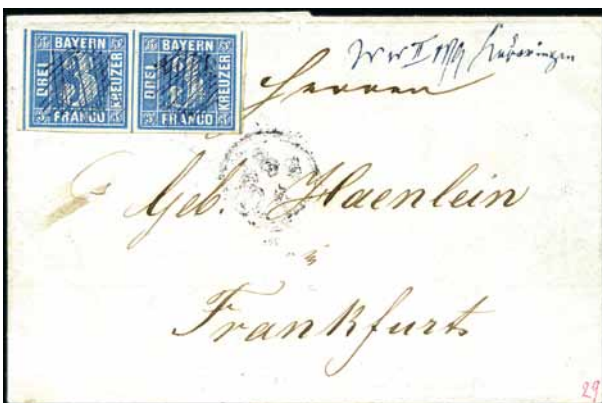 BAYERN
DREI KREUZER
3
FRANCO
BAYERN
DREI KREUZER
3
FRANCO
Herren
Geb. Haenlein
Frankfurt
29